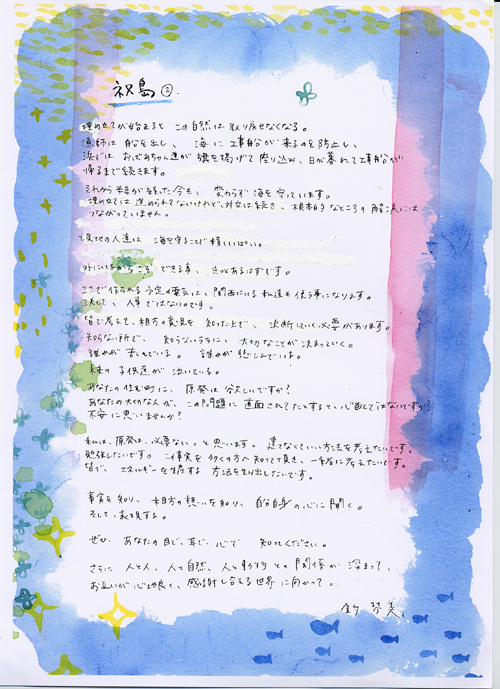 祝島②.
埋め立てが始まると この自然は取り戻せなくなる。
漁師は 船を出し、海に工事船が来るのを防止し、
浜では おばあちゃん達が 旗を掲げて座り込み、日が暮れて工事船が
帰るまで続きます。
それから 半年が経った今も、変わらず海を守っています。
埋め立ては 進められてないけれど、対立は続き、根本的なところの解決には
つながっていません。
現地の人達は 海を守ることで 精いっぱい。
外にいるからこそ できる事、きっとあるはずです。
ここで作られる予定の電気は、関西にいる私達も使う事になります。
決して、人事ではないのです。
皆で考えて、相方の意見を 知った上で、決断していく必要があります。
知らない所で、知らないうちに、大切なことが決まっていく。
誰かが 苦しんでいる。誰かが悲しんでいる。
未来の子供達が 泣いている。
あなたの住む町に、原発は 欲しいですか?
あなたの大切な人が、この問題に 直面されてたとすると、心配してはないですか?
不安に思いませんか?
私は、原発は、必要ない。と思います。建てなくていい方法を考えたいです。
勉強したいです。この事実を 多くの方へ知って頂き、一緒に考えたいです。
皆で、エネルギーを生産する 方法を生み出したいです。
事実を知り、相方の想いを知り、自分自身の心に聞く。
そして、表現する。
ぜひ、あなたの目で、耳で、心で 知ってください。
さらに 人と人、人と自然、人と動物との関係が 深まって、
お互いが心地良く、感謝し合える世界に向かって。
琴美、